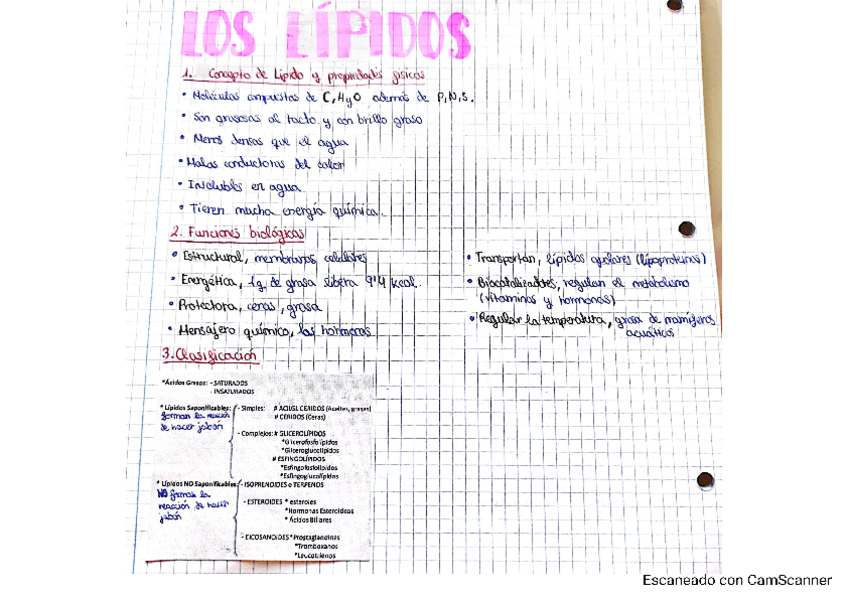 LOS LÍPIDOS
1. Concepto de Lípido y propiedades físicas
• Moléculas compuestas de C, H y O además de P, N, S.
• Son grasosas al tacto y con brillo graso
• Menos densas que el agua
• Malas conductoras del calor
• Insolubles en agua
• Tienen mucha energía química.
2. Funciones biológicas
• Estructural, membranas celulares
• Energética, 1g de grasa libera 9'4 kcal.
• Protectora, ceras, grasa
• Mensajero químico, las hormonas
• Transportan, lípidos apolares (lipoproteínas)
• Biocatalizadores, regulan el metabolismo
(vitaminas y hormonas)
• Regular la temperatura, grasa de mamíferos
acuáticos
3. Clasificación
*Ácidos Grasos: - SATURADOS
- INSATURADOS
* Lípidos Saponificables: - Simples: # ACILGLICERIDOS (Aceites, grasas)
forman la reacción # CERIDOS (Ceras)
de hacer jabón
- Complejos: # GLICEROLÍPIDOS
*Glicerofosfolípidos
*Gliceroglucolípidos
# ESFINGOLÍPIDOS
*Esfingofosfolípidos
*Esfingoglucolípidos
* Lípidos NO Saponificables: - ISOPRENOIDES o TERPENOS
NO forman la
reacción de hacer
jabón
- ESTEROIDES * esteroles
*Hormonas Esteroideas
* Ácidos Biliares
- EICOSANOIDES *Prostaglandinas
*Tromboxanos
*Leucotrienos
Escaneado con CamScanner